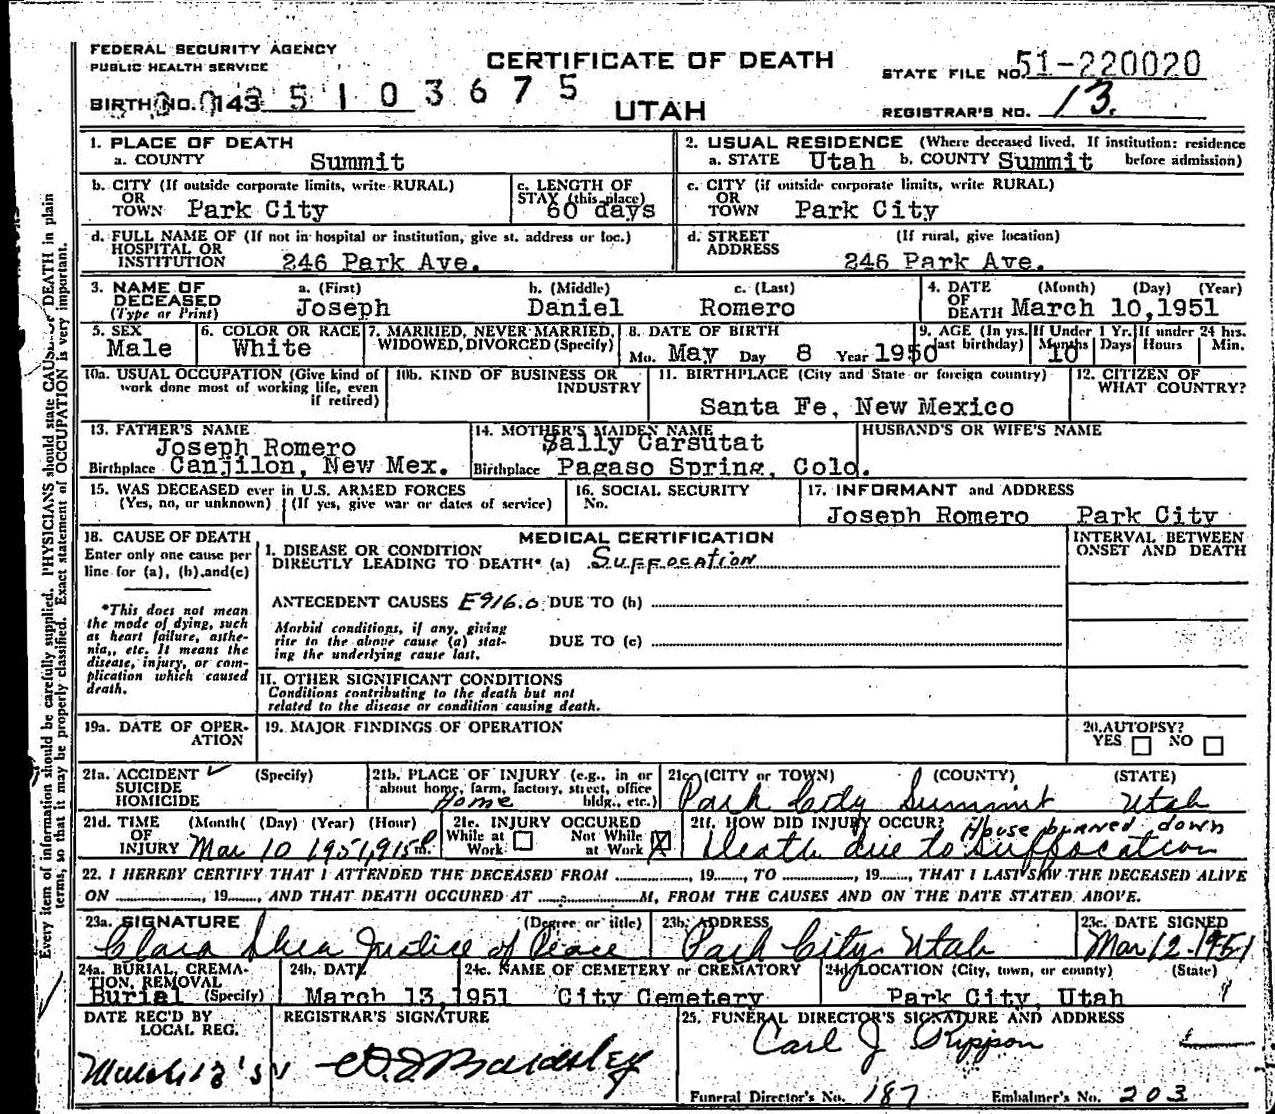 FEDERAL SECURITY AGENCY
PUBLIC HEALTH SERVICE
CERTIFICATE OF DEATH
UTAH
STATE FILE NO. 51-220020
BIRTH NO. 143 5 1 0 3 6 7 5
REGISTRAR'S NO. 13.
Every item of information should be carefully supplied. PHYSICIANS should state CAUSE OF DEATH in plain
terms, so that it may be properly classified. Exact statement of OCCUPATION is very important.
1. PLACE OF DEATH
a. COUNTY Summit
2. USUAL RESIDENCE (Where deceased lived. If institution: residence
a. STATE Utah b. COUNTY Summit before admission)
b. CITY (If outside corporate limits, write RURAL)
OR
TOWN Park City
c. LENGTH OF
STAY (this place)
60 days
c. CITY (if outside corporate limits, write RURAL)
OR
TOWN Park City
d. FULL NAME OF (If not in hospital or institution, give st. address or loc.)
HOSPITAL OR
INSTITUTION 246 Park Ave.
d. STREET (If rural, give location)
ADDRESS
246 Park Ave.
3. NAME OF a. (First) b. (Middle) c. (Last)
DECEASED
(Type or Print) Joseph Daniel Romero
4. DATE (Month) (Day) (Year)
OF
DEATH March 10,1951
5. SEX
Male
6. COLOR OR RACE
White
7. MARRIED, NEVER MARRIED,
WIDOWED, DIVORCED (Specify)
8. DATE OF BIRTH
Mo. May Day 8 Year 1950
9. AGE (In yrs. If Under 1 Yr. If under 24 hrs.
last birthday) Months Days Hours Min.
10
10a. USUAL OCCUPATION (Give kind of
work done most of working life, even
if retired)
10b. KIND OF BUSINESS OR
INDUSTRY
11. BIRTHPLACE (City and State or foreign country)
Santa Fe, New Mexico
12. CITIZEN OF
WHAT COUNTRY?
13. FATHER'S NAME
Joseph Romero
Birthplace Canjilon, New Mex.
14. MOTHER'S MAIDEN NAME
Sally Carsutat
Birthplace Pagaso Spring, Colo.
HUSBAND'S OR WIFE'S NAME
15. WAS DECEASED ever in U.S. ARMED FORCES
(Yes, no, or unknown) (If yes, give war or dates of service)
16. SOCIAL SECURITY
No.
17. INFORMANT and ADDRESS
Joseph Romero Park City
18. CAUSE OF DEATH
Enter only one cause per
line for (a), (b), and (c)
*This does not mean
the mode of dying, such
as heart failure, asthe-
nia,, etc. It means the
disease, injury, or com-
plication which caused
death.
MEDICAL CERTIFICATION
I. DISEASE OR CONDITION
DIRECTLY LEADING TO DEATH* (a) Suffocation
ANTECEDENT CAUSES E916.0 DUE TO (b)
Morbid conditions, if any, giving
rise to the above cause (a) stat-
ing the underlying cause last.
DUE TO (c)
II. OTHER SIGNIFICANT CONDITIONS
Conditions contributing to the death but not
related to the disease or condition causing death.
INTERVAL BETWEEN
ONSET AND DEATH
19a. DATE OF OPER-
ATION
19. MAJOR FINDINGS OF OPERATION
20. AUTOPSY?
YES NO
21a. ACCIDENT ✓ (Specify)
SUICIDE
HOMICIDE
21b. PLACE OF INJURY (e.g., in or
about home, farm, factory, street, office
Home bldg., etc.)
21c. (CITY or TOWN) (COUNTY) (STATE)
Park City Summit Utah
21d. TIME (Month( (Day) (Year) (Hour)
OF
INJURY Mar 10 1951, 915 P m.
21e. INJURY OCCURED
While at Not While
Work at Work X
21f. HOW DID INJURY OCCUR? House burned down
Death due to suffocation
22. I HEREBY CERTIFY THAT I ATTENDED THE DECEASED FROM , 19 , TO , 19 , THAT I LAST SAW THE DECEASED ALIVE
ON , 19 , AND THAT DEATH OCCURED AT M, FROM THE CAUSES AND ON THE DATE STATED ABOVE.
23a. SIGNATURE (Degree or title)
Clara Shea Justice of Peace
23b. ADDRESS
Park City Utah
23c. DATE SIGNED
Mar 12-1951
24a. BURIAL, CREMA-
TION, REMOVAL
Burial (Specify)
24b. DATE
March 13,1951
24c. NAME OF CEMETERY or CREMATORY
City Cemetery
24d. LOCATION (City, town, or county) (State)
Park City, Utah
DATE REC'D BY
LOCAL REG.
March 13 '51
REGISTRAR'S SIGNATURE
25. FUNERAL DIRECTOR'S SIGNATURE AND ADDRESS
Carl J Rippon
Funeral Director's No. 187 Embalmer's No. 203